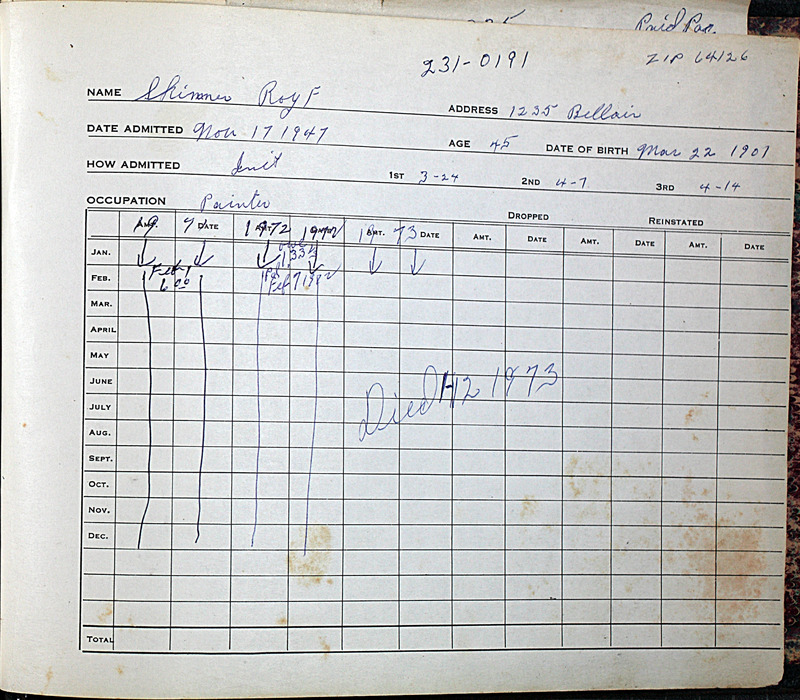 Paid Par.
231-0191
ZIP 64126
NAME Skinner Roy F
ADDRESS 1235 Bellair
DATE ADMITTED Nov 17 1947
AGE 45 DATE OF BIRTH Mar 22 1901
HOW ADMITTED Init
1ST 3-24 2ND 4-7 3RD 4-14
OCCUPATION Painter
DROPPED REINSTATED
AMT. DATE AMT. AMT. AMT. DATE AMT. DATE AMT. DATE AMT. DATE
19 71 1972 1972 19 73
JAN.
FEB. Feb 1
6 00
Feb 7 1972
MAR.
APRIL
MAY
JUNE
Died 1-12 1973
JULY
AUG.
SEPT.
OCT.
NOV.
DEC.
TOTAL